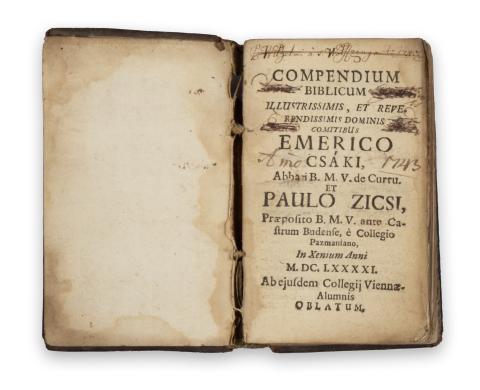 COMPENDIUM
BIBLICUM
ILLUSTRISSIMIS, ET REVE-
RENDISSIMIS DOMINIS
COMITIBUS
EMERICO
CSÁKI,
Anno 1743
Abbati B. M. V. de Curru.
ET
PAULO ZICSI,
Præposito B. M. V. ante Ca-
strum Budense, è Collegio
Pazmaniano,
In Xenium Anni
M. DC. LXXXXI.
Ab ejusdem Collegij Viennæ-
Alumnis
OBLATUM.